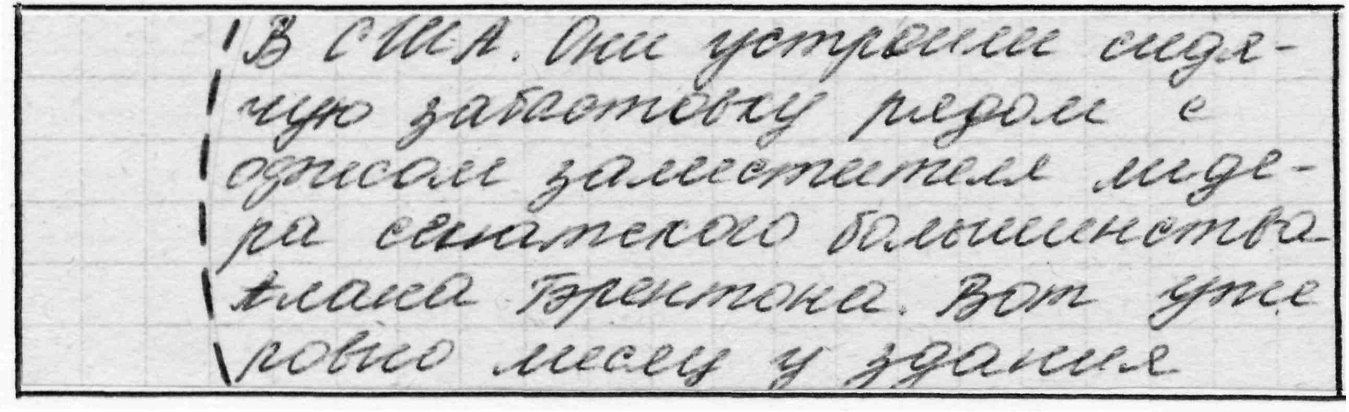 В США. Они устроили сидя-
чую забастовку рядом с
офисом заместителя лиде-
ра сенатского большинства
Алана Брентона. Вот уже
ровно месяц у здания